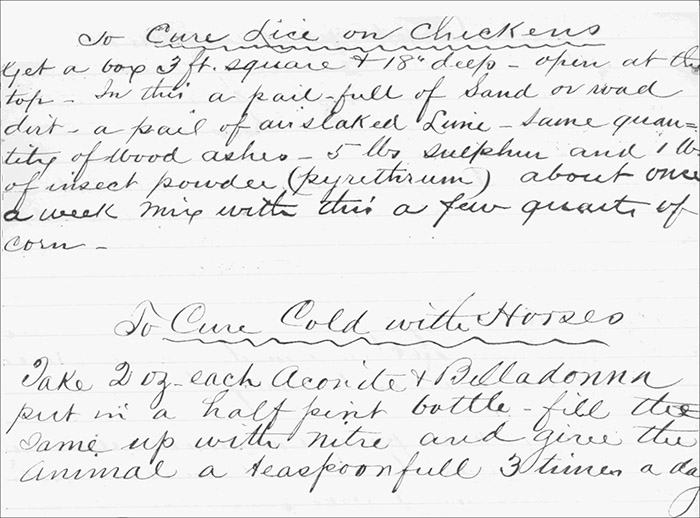 To Cure Lice on Chickens
Get a box 3 ft. square & 18" deep - open at the
top - In this a pail-full of Sand or road
dirt - a pail of airslaked Lime - Same quan=
tity of Wood ashes - 5 lbs sulphur and 1 lb
of insect powder (pyrethrum) about once
a week mix with this a few quarts of
corn -
To Cure Cold with Horses
Take 2 oz - each Aconite & Belladonna
put in a half pint bottle - fill the
same up with nitre and give the
animal a teaspoonfull 3 times a day